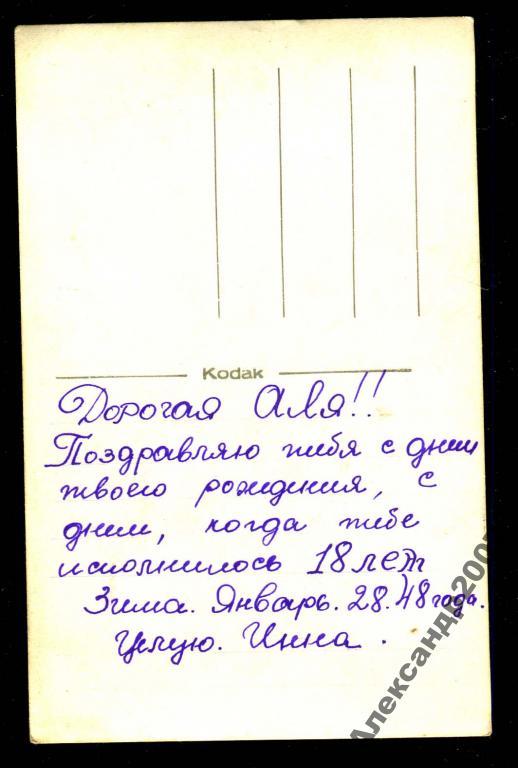 Kodak
Дорогая Аля!!
Поздравляю тебя с днем
твоего рождения, с
днем, когда тебе
исполнилось 18 лет
Зима. Январь. 28. 48 года.
Целую. Инна.
Александр2007